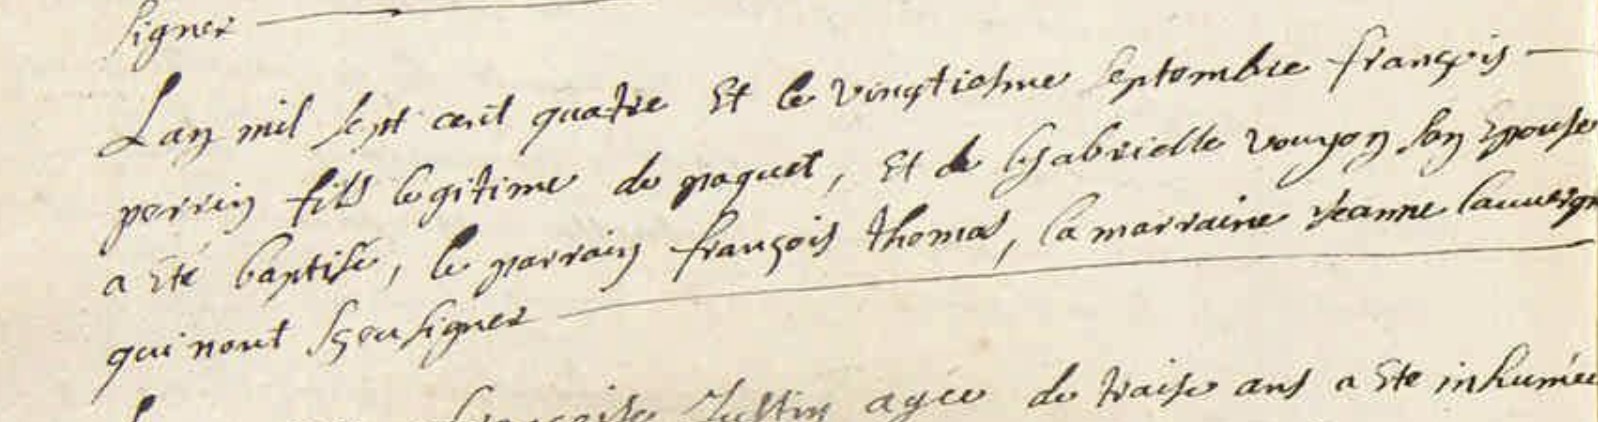 signer
Lan mil sept cent quatre Et le vingtiesme septembre françois
perrin fils legitime de paquet, Et de Gabrielle vouyon son Epouse
a Eté baptisé, le parrain françois thomas, la marraine Jeanne lauvergn
qui nont sçeu signer
françoise Justin agée de traise ans a Ete inhumée